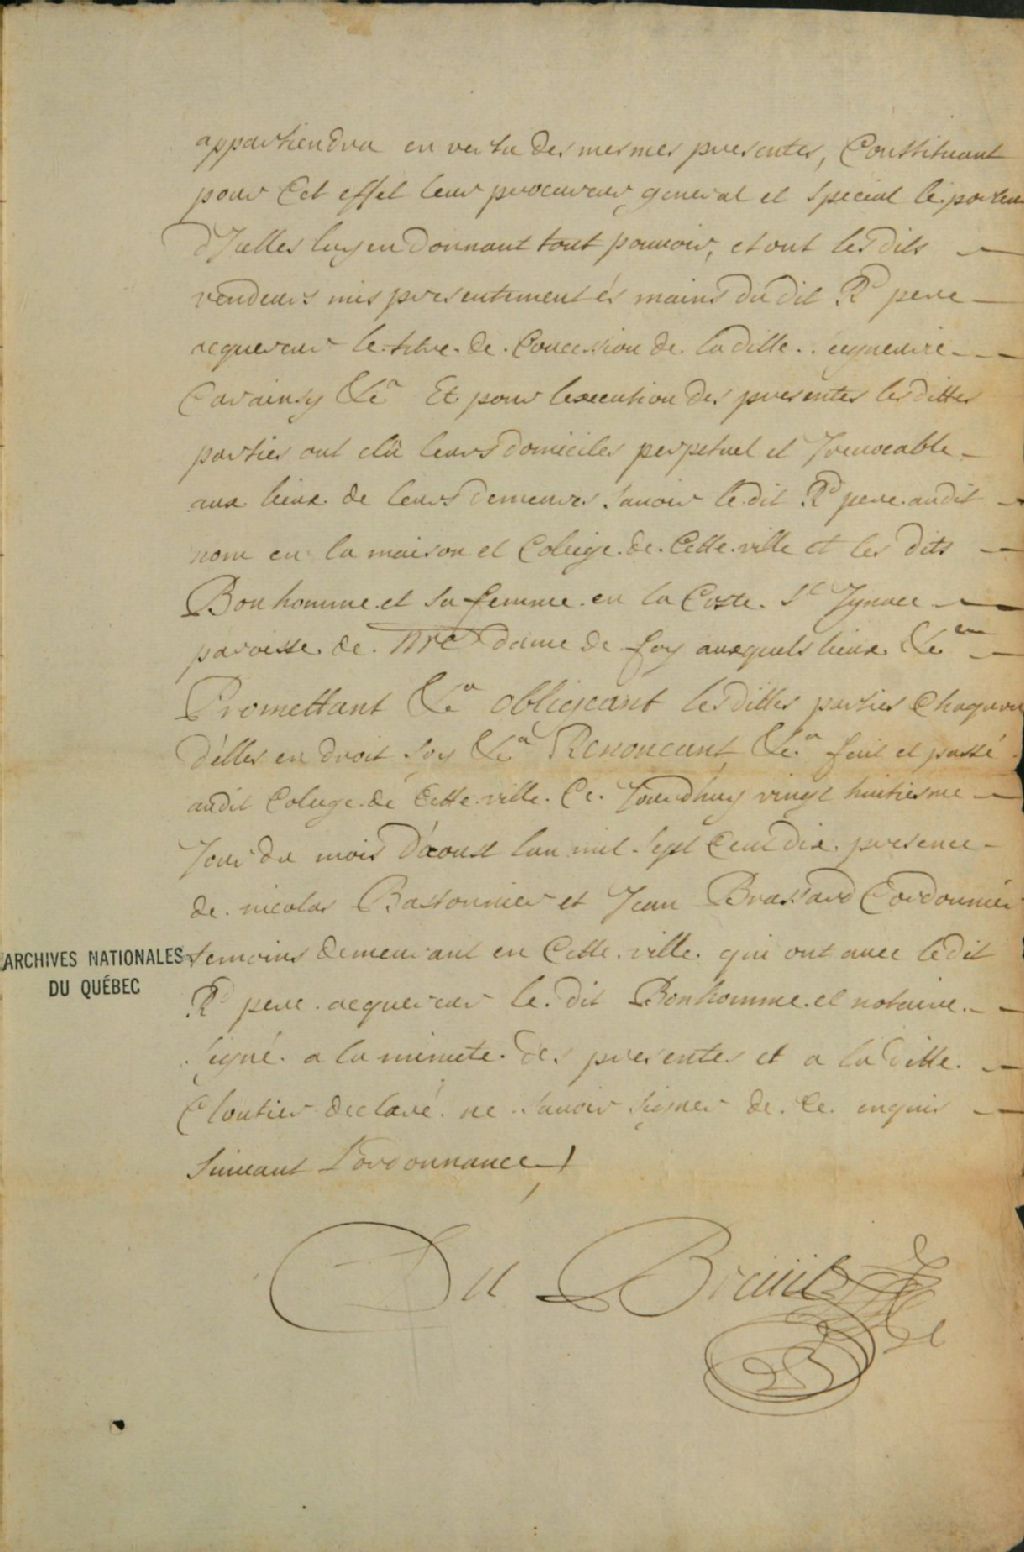 appartiendra en vertu des mesmes presentes, Constituant
pour Cet effet leur procureur general et special le porteur
d'Icelles luy en donnant tout pouvoir, et ont les dits
vendeurs mis presentement és mains du dit Rd pere
acquereur le titre de Concession de la ditte
&ca Et pour lexecution des presentes les dittes
parties ont elu leurs domiciles perpetuel et Irevocable
aux lieux de leurs demeures savoir le dit Rd pere audit
nom en la maison et Colege de Cette ville et les dits
Bonhomme et sa femme en la Coste St Ignace
paroisse de Nre dame de foy auxquels lieux &ca
Promettant &ca obligeant les dittes parties Chaqune
d'elles en droit soy &ca Renoncant &ca fait et passé
audit Colege de Cette ville Ce Jourdhuy vingt huitiesme
Jour du mois d'aoust lan mil sept Cent dix presence
de nicolas Bassonnier et Jean Brassard Cordonnier
temoins demeurant en Cette ville qui ont avec le dit
Rd pere acquereur le dit Bonhomme et notaire
signé a la minute des presentes et a la ditte
Cloutier declaré ne savoir signer de Ce enquis
suivant L'ordonnance
Du Breuil
ARCHIVES NATIONALES
DU QUÉBEC